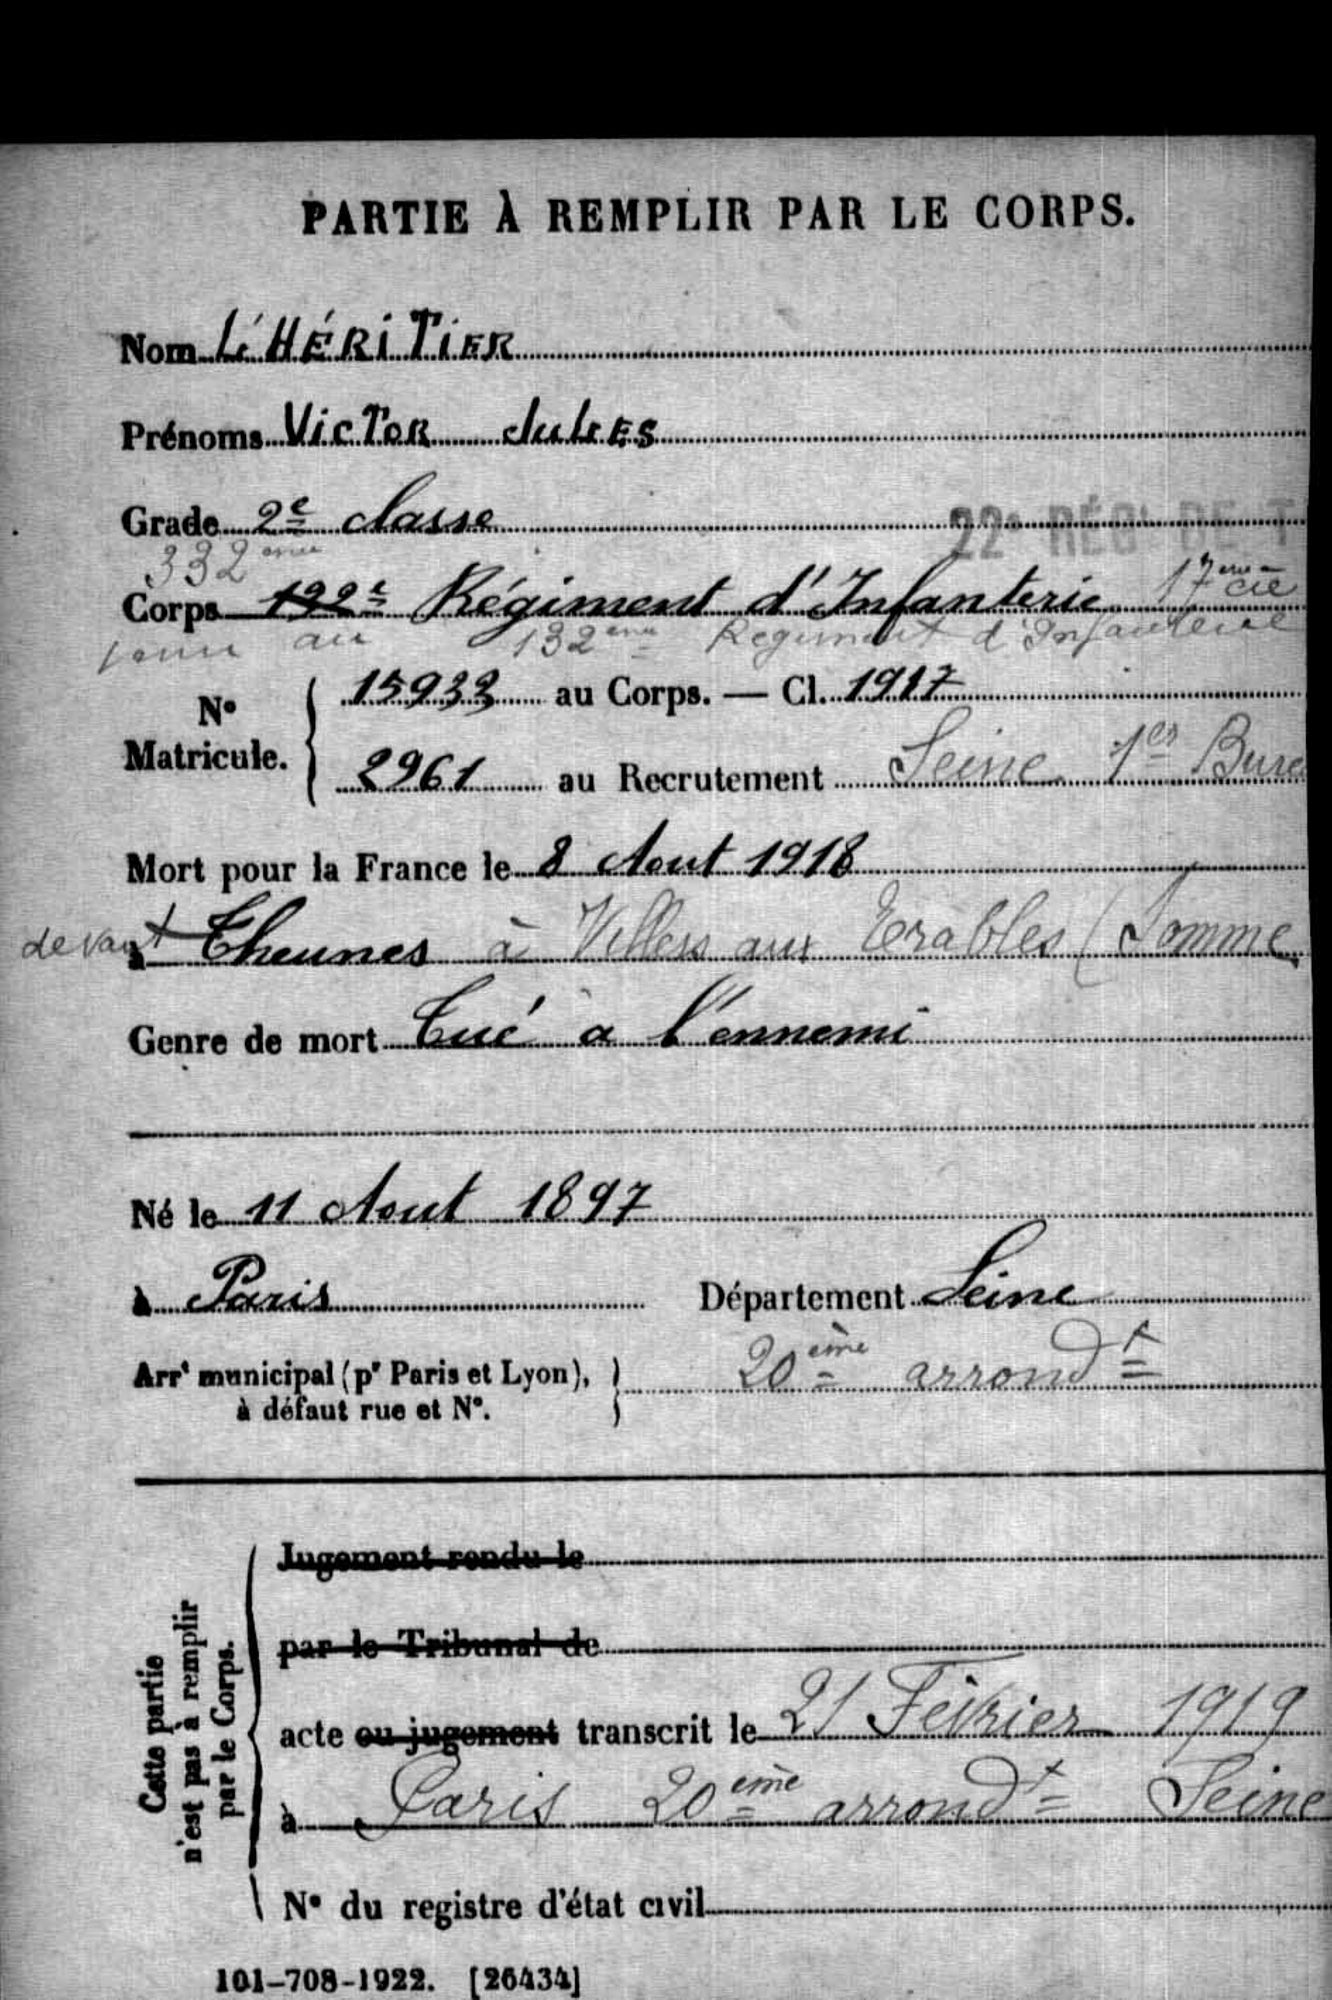 PARTIE À REMPLIR PAR LE CORPS.
Nom L'HÉRITIER
Prénoms VICTOR JULES
Grade 2e classe
22e RÉGt DE T
332ème
Corps 122e Régiment d'Infanterie 17ème cie
au 132ème Regiment d'Infanterie
No Matricule. 15933 au Corps. — Cl. 1917
2961 au Recrutement Seine 1er Bure
Mort pour la France le 8 Aout 1918
devant Theunes à Villers aux Erables (Somme
Genre de mort Tué a l'ennemi
Né le 11 Aout 1897
à Paris Département Seine
Arrt municipal (pr Paris et Lyon), à défaut rue et No. 20ème arrondt
Cette partie n'est pas à remplir par le Corps.
Jugement rendu le
par le Tribunal de
acte ou jugement transcrit le 21 Février 1919
à Paris 20ème arrondt Seine
No du registre d'état civil
101-708-1922. [26434]